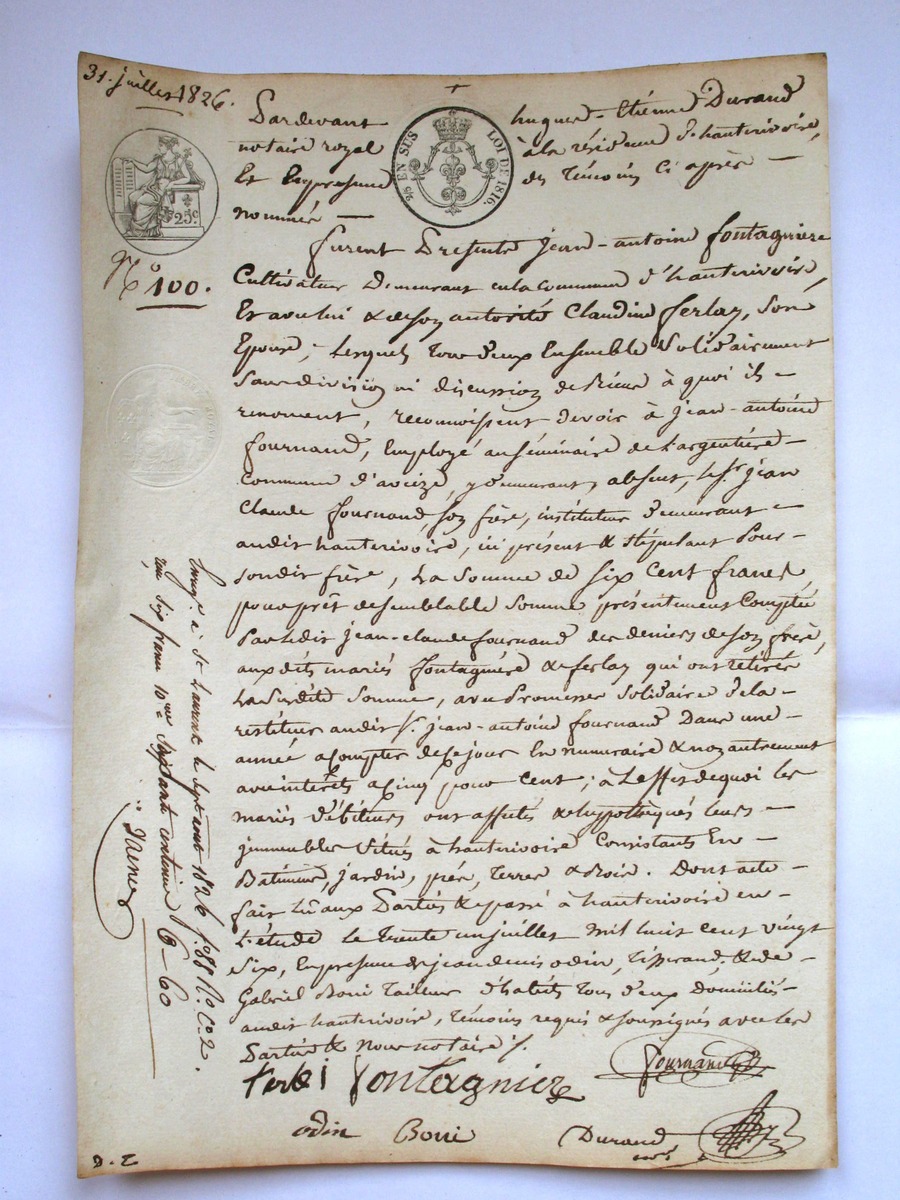 31. juillet 1826.
Pardevant hugues-Etienne Durand
notaire royal à la résidence d'hauterivoire,
Et En présence des témoins Ci après
nommés
2/5 EN SUS LOI DE 1816.
25c.
No. 100.
furent Présents jean-antoine fontagniere
Cultivateur Demeurant en la commune d'hauterivoire,
Et avec lui & de son autorité Claudine ferlay, son
Epouse, Lesquels tous deux Ensemble solidairement
Sans division ni discussion de biens à quoi ils
renoncent, reconnoissent devoir à jean-antoine
fournand, Employé au séminaire de L'argentière
Commune d'aveize, y demeurant, absent, le sr. jean
Claude fournand, son frère, instituteur demeurant
audit hauterivoire, ici présent & stipulant Pour
sondit frère, La Somme de Six Cent francs,
pour prêt de semblable Somme présentement Comptée
Par ledit jean-claude fournand des deniers de son frère,
aux dits mariés fontagnière & ferlay qui ont retirée
La susdite Somme, avec Promesse solidaire de la
restituer audit sr. jean-antoine fournand Dans une
année à Compter de ce jour En numéraire & non autrement
avec intérêts à cinq pour cent; à L'effet de quoi les
mariés débiteurs ont affectés & hypothéqués leurs
immeubles situés à hauterivoire Consistants En
Batiments, jardin, prés, terres & bois. Dont acte
fait lu aux Parties & passé à hauterivoire en
L'étude le trente un juillet mil huit cent vingt
Six, En présence de jean denis odin, tisserand, & de
Gabriel Boni tailleur d'habits tous deux domiciliés
audit hauterivoire, témoins requis & soussignés avec les
Parties & nous notaire ./.
ferlei fontagnier fournand
odin Boni Durand
nre
Enreg. à St Laurent le sept aout 1826 fo. 88 Ro. C. 2.
reçu six francs 10me soixante centimes 6-60
D.E